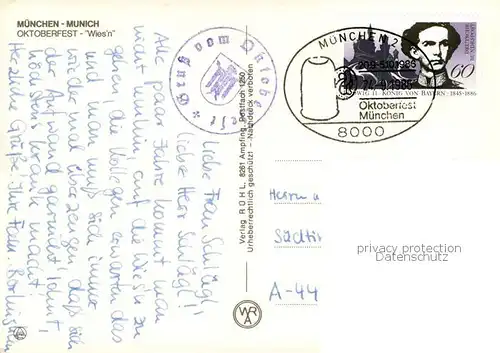 MÜNCHEN - MUNICH
OKTOBERFEST - "Wies'n"
Liebe Frau Schlägl!
Liebe Herr Schlägl!
Alle paar Jahre kommt man
nicht darum auf die Wies'n zu
gehen, die Kollegen erwarten das
und man muß sich immer
wieder mal überzeugen daß sich
der Aufwand garnicht lohnt!
Herzliche Grüße Ihre Fam.
Gruß vom Oktoberfest
Verlag RÜHL, 8261 Ampfing, Postfach 1250
Urheberrechtlich geschützt - Nachdruck verboten
WRA
MÜNCHEN 2
20.9-5.10.1986
Oktoberfest
München
8000
60
LUDWIG II. KÖNIG VON BAYERN · 1845-1886
DEUTSCHE BUNDESPOST
Herrn u
Südtir
A-44
privacy protection
DELCAMPE.